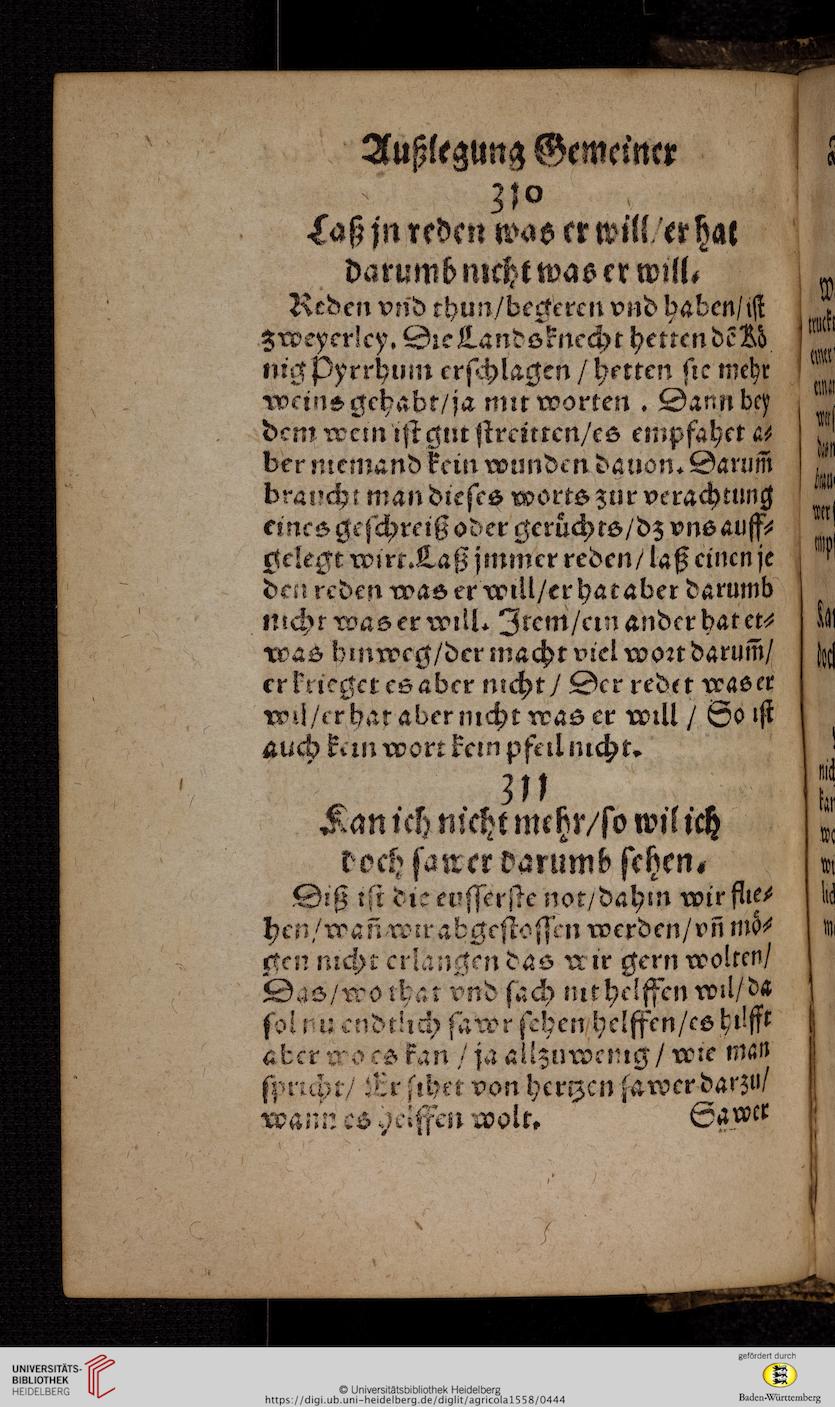 Außlegung Gemeiner
310
Laß jn reden was er will/er hat
darumb nicht was er will.
Reden vnd thun/begeren vnd haben/ist
zweyerley. Die Landsknecht hetten dẽ Kö
nig Pyrrhum erschlagen / hetten sie mehr
weins gehabt/ja mit worten . Dann bey
dem wein ist gut streitten/es empfahet a⸗
ber niemand kein wunden dauon. Darum̃
braucht man dieses worts zur verachtung
eines geschreiß oder gerüchts/dz vns auff⸗
gelegt wirt. Laß jmmer reden/ laß einen je
den reden was er will/er hat aber darumb
nicht was er will. Item/ein ander hat et⸗
was hinweg/der macht viel wort darum̃/
er krieget es aber nicht / Der redet was er
wil/er hat aber nicht was er will / So ist
auch kein wort kein pfeil nicht.
311
Kan ich nicht mehr/so wil ich
doch sawer darumb sehen.
Diß ist die eusserste not/dahin wir flie⸗
hen/wañ wir abgestossen werden/vñ mö⸗
gen nicht erlangen das wir gern wolten/
Das/wo that vnd sach nit helffen wil/da
sol nu endtlich sawr sehen/helffen/es hilfft
aber wo es kan / ja allzuwenig / wie man
spricht/ Er sihet von hertzen sawer darzu/
wann es helffen wolt.
Sawer
UNIVERSITÄTS-
BIBLIOTHEK
HEIDELBERG
© Universitätsbibliothek Heidelberg
https://digi.ub.uni-heidelberg.de/diglit/agricola1558/0444
gefördert durch
Baden-Württemberg